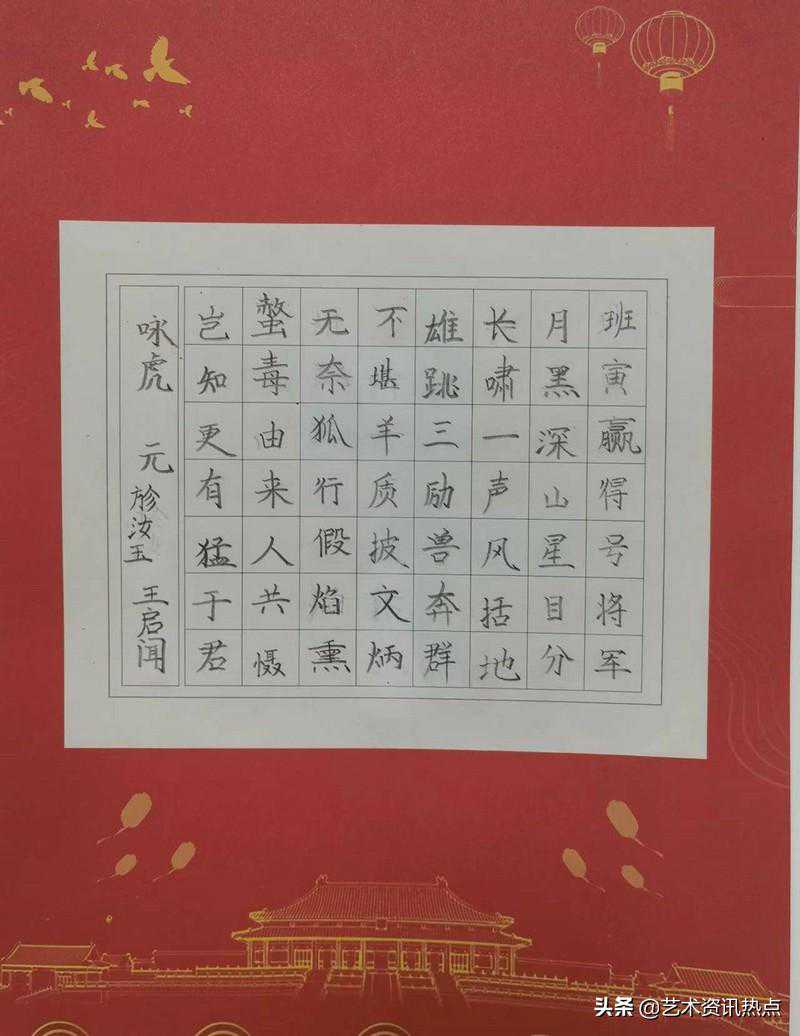 班寅赢得号将军
月黑深山星目分
长啸一声风括地
雄跳三励兽奔群
不堪羊质披文炳
无奈狐行假焰熏
螫毒由来人共慑
岂知更有猛于君
咏虎 元 汝玉 王启闻
头条 @艺术资讯热点